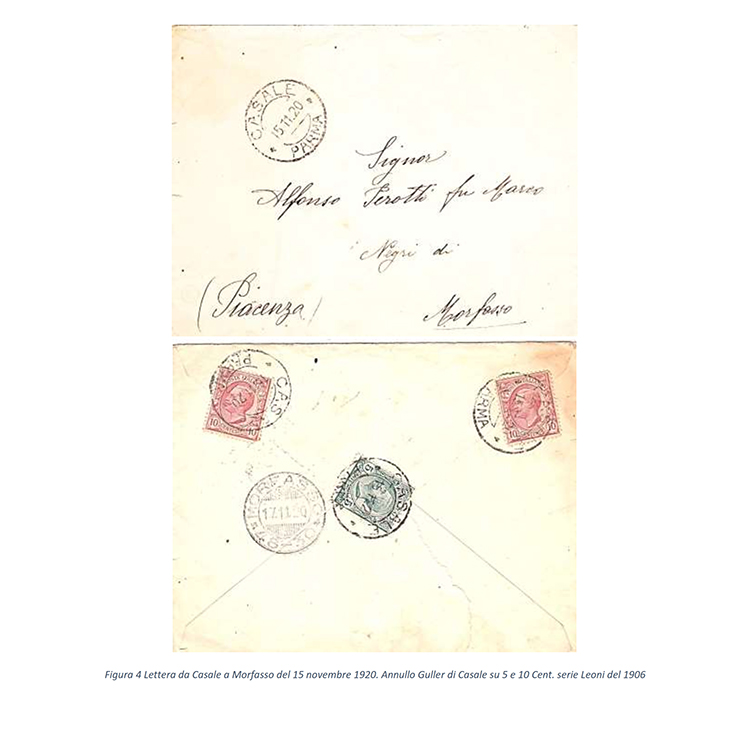 CASALE
15.11.20
PARMA
Signor
Alfonso Perotti fu Marco
Negri di
(Piacenza)
Morfasso
CASALE
10
10
10
10
PARMA
CASALE
MORFASSO
17.11.20
Figura 4 Lettera da Casale a Morfasso del 15 novembre 1920. Annullo Guller di Casale su 5 e 10 Cent. serie Leoni del 1906